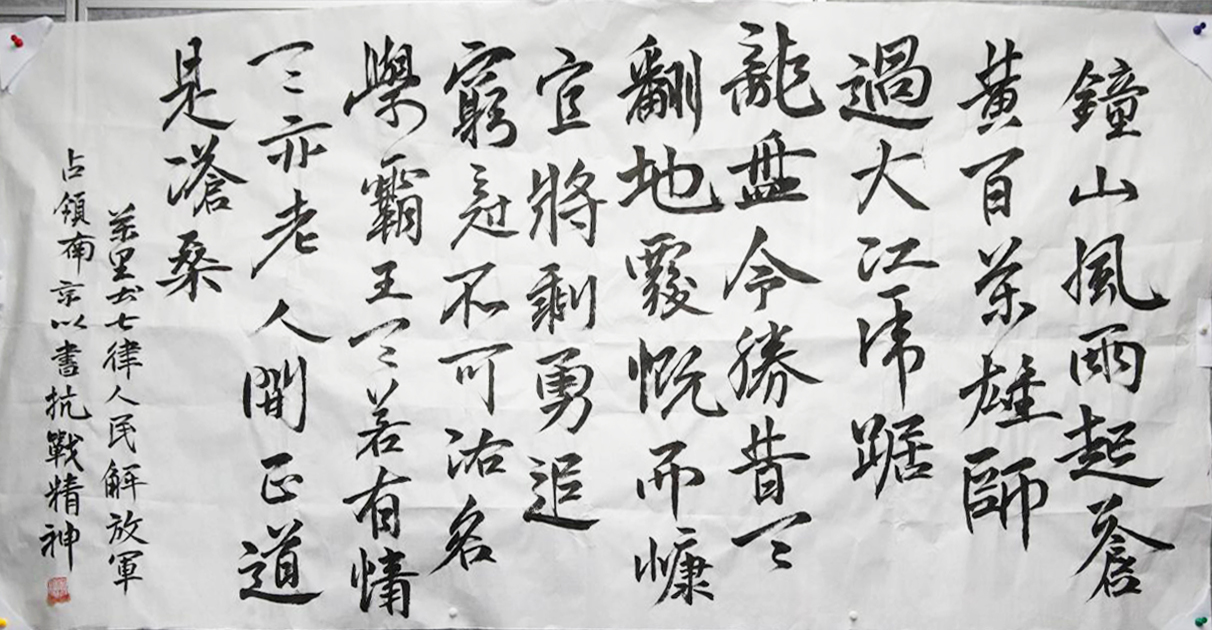 鐘山風雨起蒼
黄百萬雄師
過大江虎踞
龍盤今勝昔天
翻地覆慨而慷
宜將剩勇追
窮寇不可沽名
學霸王天若有情
天亦老人間正道
是滄桑
萬里书七律人民解放軍
占領南京以書抗戰精神